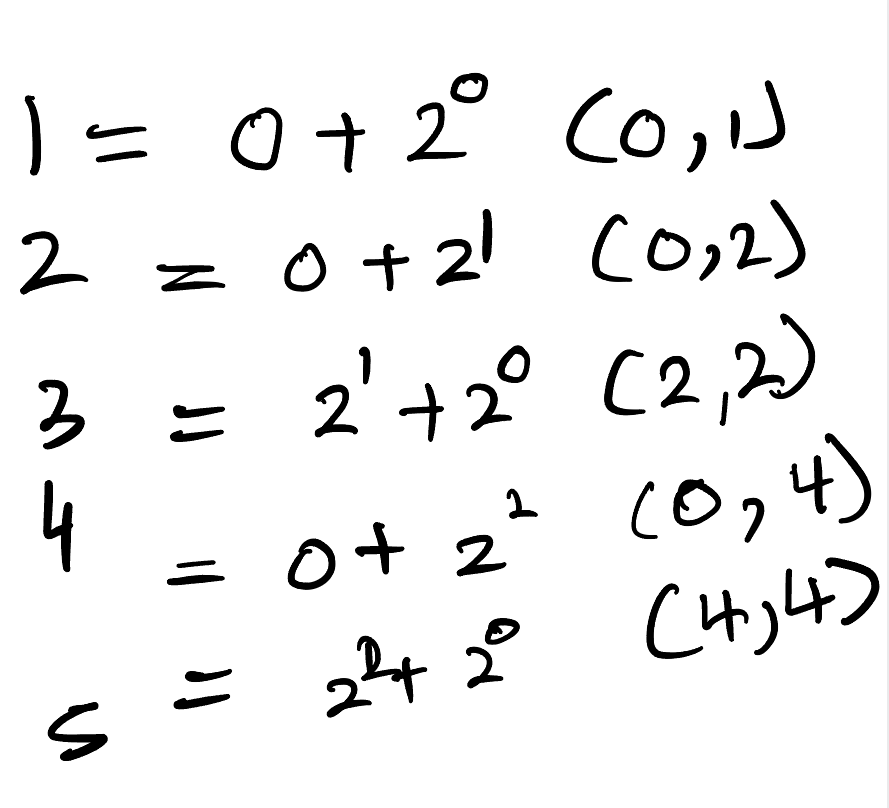 1 = 0 + 2⁰ (0,1)
2 = 0 + 2¹ (0,2)
3 = 2¹ + 2⁰ (2,2)
4 = 0 + 2² (0,4)
5 = 2² + 2⁰ (4,4)